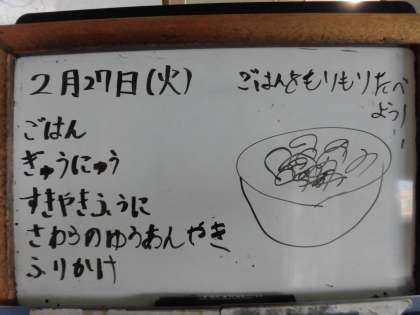 2月27日(火)
ごはん
ぎゅうにゅう
すきやきふうに
さわらのゆうあんやき
ふりかけ
ごはんをもりもりたべ
よう!